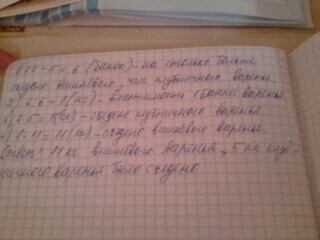 1) 11-5=6 (банок)-на столько больше
съедено вишнёвого, чем клубничного варенья.
2) 6:6=1(кг)-вместимость 1 банки варенья.
3) 1·5=5(кг)-съедено клубничного варенья.
4) 1·11=11(кг)-съедено вишнёвого варенья.
Ответ: 11 кг вишнёвого варенья, 5 кг клуб-
ничного варенья было съедено